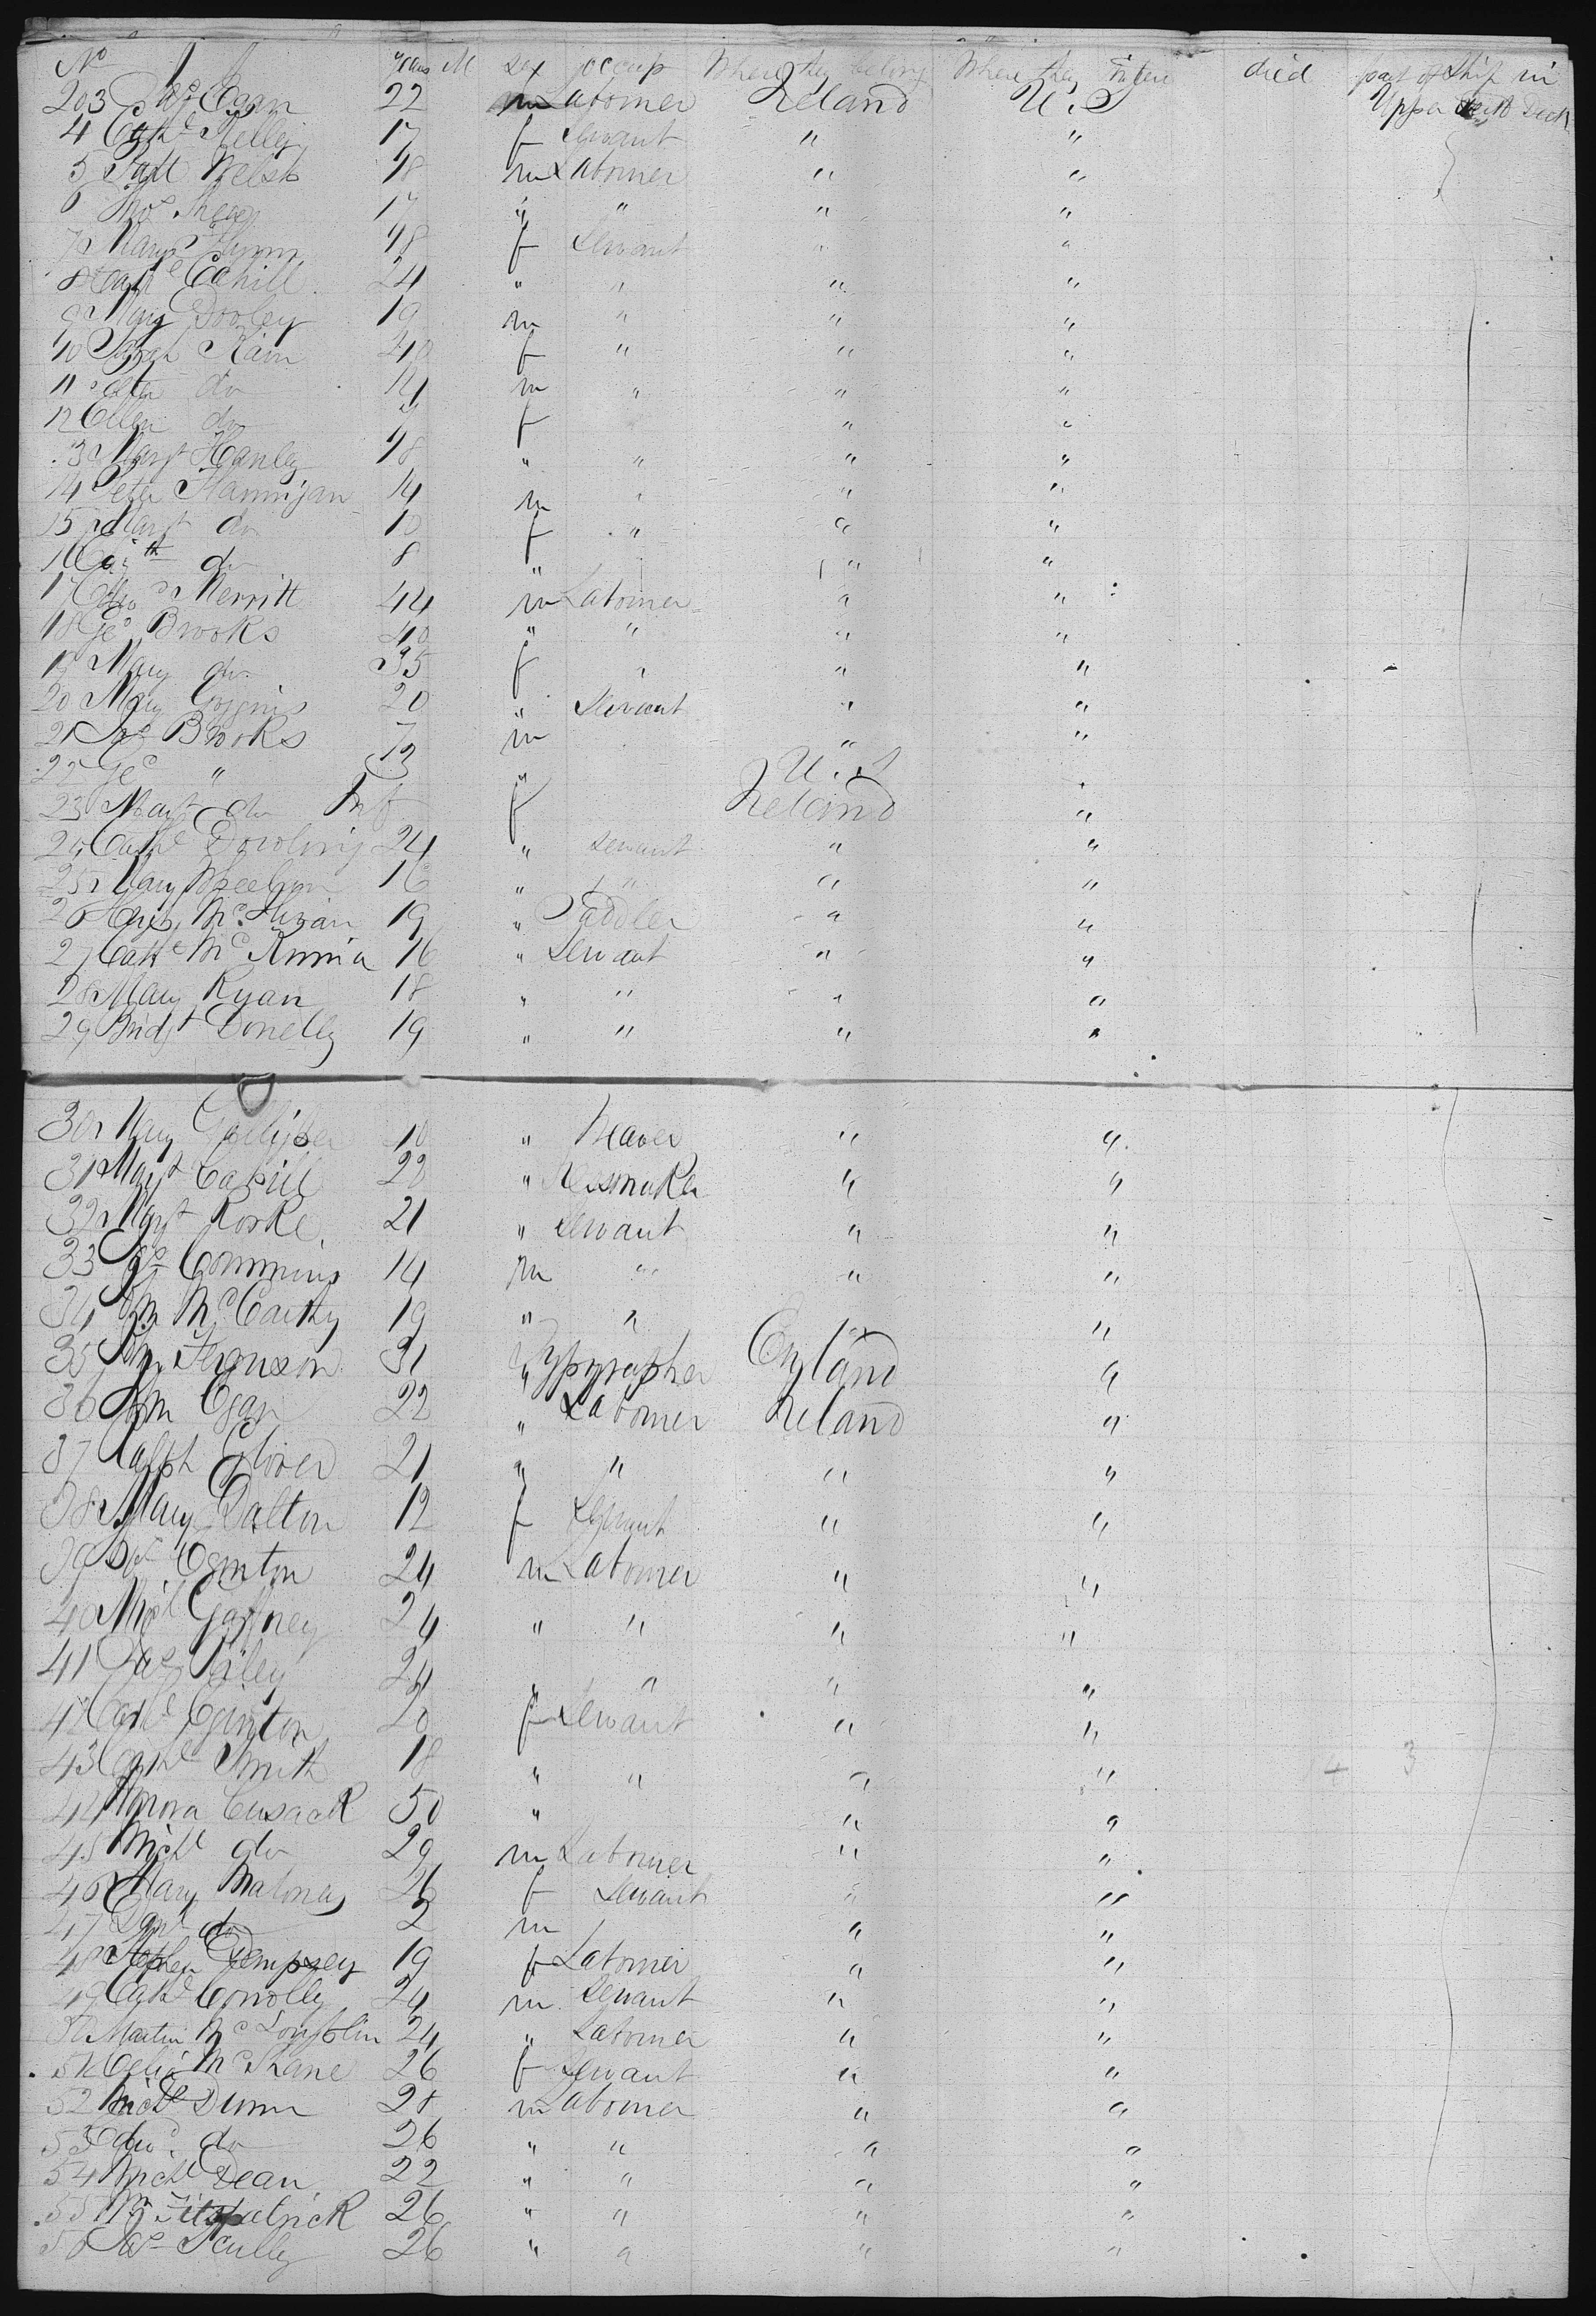 No years M sex occup Where they belong Where they intend died part of Ship in
203 Jas Egan 22 m Labourer Ireland U. S Upper Deck
4 Cathe Kelley 17 f Servant " "
5 Patt Welsh 18 m Labourer " "
6 Thos 17 " " " "
7 Mary Flynn 18 f Servant " "
8 Cathe Cahill 24 " " " "
9 Mary Dooley 19 m " " "
10 Sarah Kain 40 f " " "
11 Peter do 14 m " " "
12 Ellen do f " " "
13 Margt Hanley 18 " " " "
14 Peter Hannigan 14 m " " "
15 Margt do 10 f " " "
16 do 8 " " "
17 Edwd Merritt 44 m Labourer " "
18 Geo Brooks 40 " " " "
19 Mary do 35 f " " "
20 Mary Goggins 20 " Servant " "
21 Jas Brooks 7 m " "
22 Geo " 13 " U. S
23 Margt do Inf f Ireland "
24 Cathe Dowling 24 " servant " "
25 Mary Wheelan 16 " " " "
26 19 " Saddler " "
27 Cathe McKinnia 16 " Servant " "
28 Mary Ryan 18 " " " "
29 Bridgt Donelly 19 " " " "
30 Mary 10 " Weaver " "
31 Margt Cahill 22 " " "
32 Margt Rorke 21 " Servant " "
33 Commins 14 m " " "
34 Wm McCarthy 19 " " "
35 Wm Ferguson 31 " Typgrapher England "
36 Wm Egan 22 " Labourer Ireland "
37 Ralph Glover 21 " " " "
38 Mary Dalton 12 f Servant " "
39 Eginton 24 m Labourer " "
40 Michl Gaffney 24 " " " "
41 Jas Riley 24 " " " "
42 Cathe Eginton 20 f Servant " "
43 Cathe Smith 18 " " " " 3
44 Honora Cusack 50 " " "
45 Michl do 29 m Labourer " "
46 Mary Maloney 26 f Servant " "
47 Danl do 2 m " "
48 Stephen Dempsey 19 f Labourer " "
49 Cathe Conolly 24 m Servant " "
50 Martin McLoughlin 24 " Labourer " "
51 Celia McKane 26 f Servant " "
52 Michl Dunn 28 m Labourer " "
53 Edwd. do 26 " " " "
54 Michl Dean 22 " " " "
55 Wm Fitzpatrick 26 " " " "
56 Jas Scully 26 " " " "